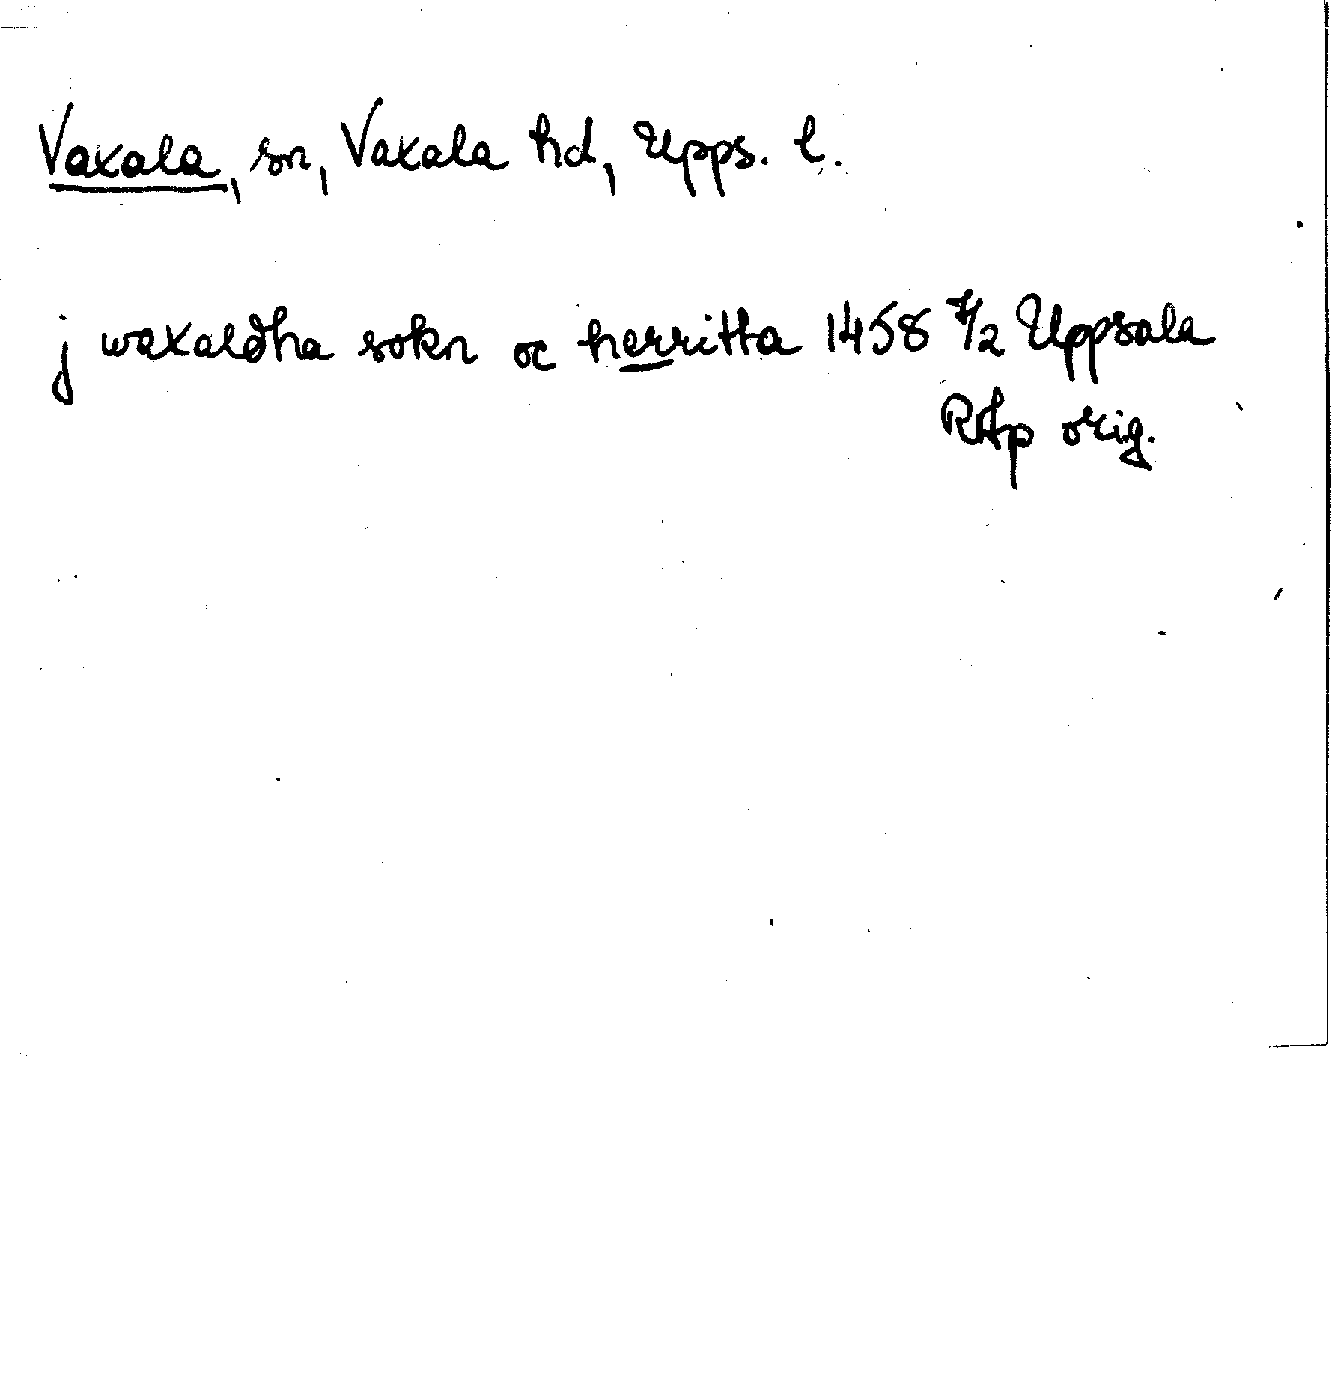 Vaxala, sn, Vaxala hd, Upps. l.
j waxaldha sokn oc herritta 1458 7/2 Uppsala
RAp orig.